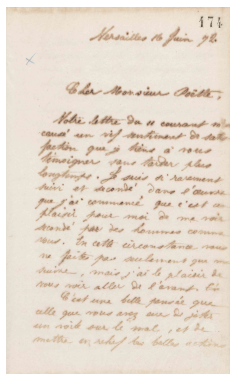 474
Versailles 16 Juin 92.
Cher Monsieur
Votre lettre du 11 courant m'a
causé un vif sentiment de satis
faction que je tiens à vous
témoigner sans tarder plus
longtemps. Je suis si rarement
suivi et secondé dans l'œuvre
que j'ai commencé que c'est un
plaisir pour moi de me voir
secondé par des hommes comme
vous. En cette circonstance vous
ne faites pas seulement que me
suivre, mais j'ai le plaisir de
vous voir aller de l'avant.
C'est une belle pensée que
celle que vous avez eue de jeter
un voile sur le mal, et de
mettre en relief les belles actions